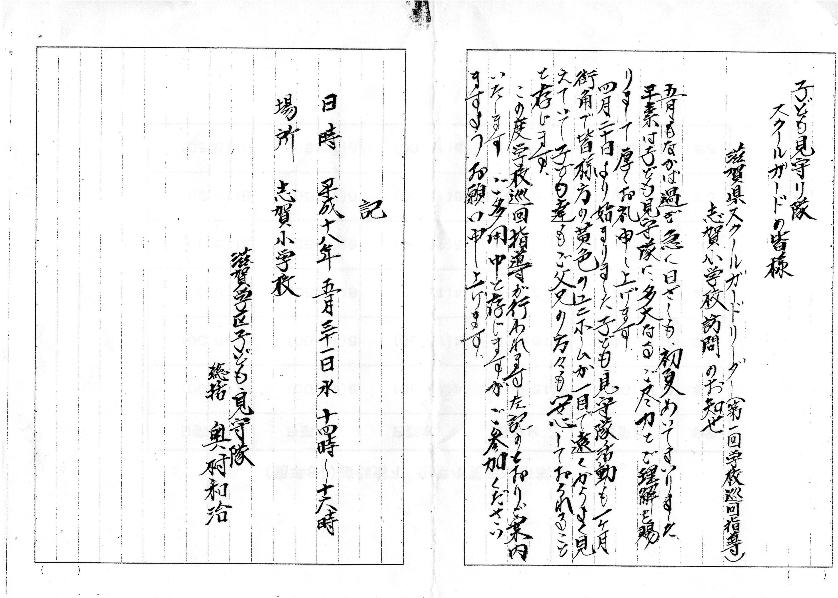 子ども見守り隊
スクールガードの皆様
滋賀県スクールガードリーダー(第一回学校巡回指導)
志賀小学校訪問のお知せ
五月もなかば過ぎ急に日ざしも、初夏めいてまいりました
平素は子ども見守隊に多大なるご尽力とご理解を賜
りまして厚くお礼申し上げます
四月二十日より始まりました子ども見守隊活動も一ヶ月
街角で皆様方の黄色のユニホームが一目で遠くからもよく見
えていて子ども達もご父兄の方々も安心しておられること
と存じます。
この度学校巡回指導が行われます左記のとおりご案内
いたします ご多用中と存じますがご参加ください
ますようお願い申し上げます。
記
日時 平成十八年 五月三十一日水 十四時〜十六時
場所 志賀小学校
滋賀学区子ども見守隊
総括 奥村和治